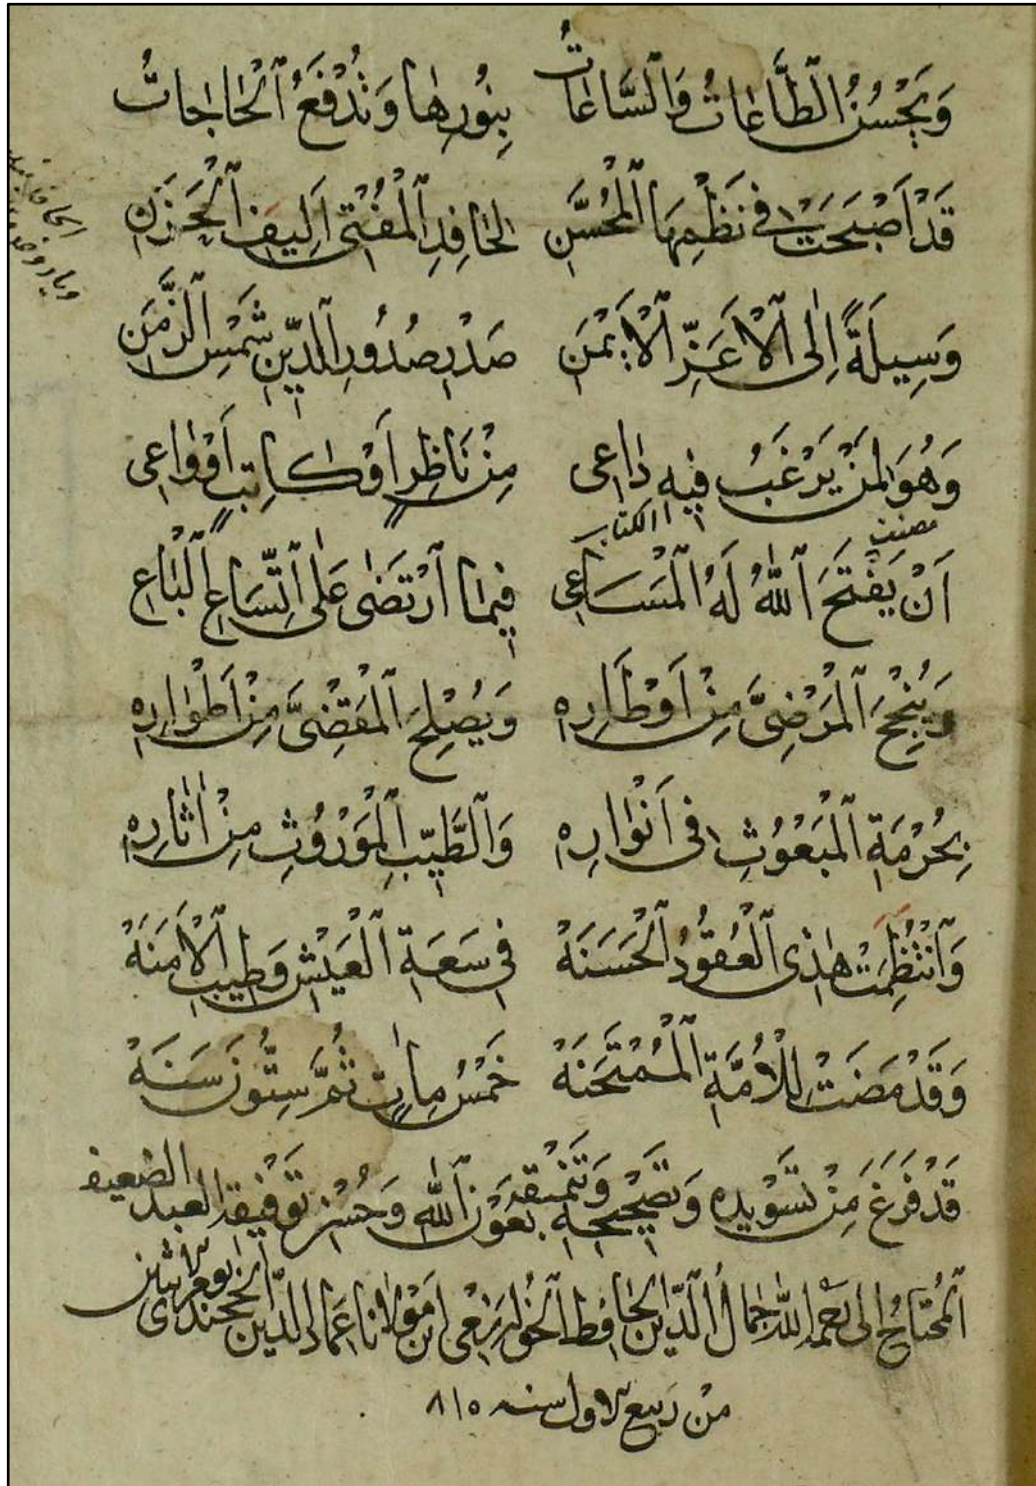 وَيَحْسُنُ ٱلطَّاعَاتُ وَٱلسَّاعَاتُ بِنُورِهَا وَتُدْفَعُ ٱلْحَاجَاتُ
قَدْ اَصْبَحَتْ فِي نَظْمِهَا ٱلْمُحَسَّنِ لِحَافِدِ ٱلْمُفْتِي اَلِيفِ ٱلْحَزَنِ
وَسِيلَةً اِلَى ٱلْاَعَزِّ ٱلْاَيْمَنِ صَدْرِ صُدُورِ ٱلدِّينِ شَمْسِ ٱلزَّمَنِ
وَهُوَ لِمَنْ يَرْغَبُ فِيهِ دَاعِي مِنْ نَاظِرٍ اَوْ كَاتِبٍ اَوْ وَاعِي
مصنف الكتاب
اَنْ يَفْتَحَ ٱللّٰهُ لَهُ ٱلْمَسَاعِي فِيمَا ٱرْتَضَى عَلَى ٱتِّسَاعِ ٱلْبَاعِ
وَيُنْجِحَ ٱلْمَرْضِيَّ مِنْ اَوْطَارِهِ وَيُصْلِحَ ٱلْمَقْضِيَّ مِنْ اَطْوَارِهِ
بِحُرْمَةِ ٱلْمَبْعُوثِ فِي اَنْوَارِهِ وَٱلطَّيِّبِ ٱلْمَوْرُوثِ مِنْ اٰثَارِهِ
وَٱنْتُظِمَتْ هٰذِي ٱلْعُقُودُ ٱلْحَسَنَهْ فِي سَعَةِ ٱلْعَيْشِ وَطِيبِ ٱلْاَمَنَهْ
وَقَدْ مَضَتْ لِلْاُمَّةِ ٱلْمُمْتَحَنَهْ خَمْسُ مِاٰتٍ ثُمَّ سِتُّونَ سَنَهْ
قَدْ فَرَغَ مِنْ تَسْوِيدِهِ وَتَصْحِيحِهِ وَتَنْمِيقِهِ بِعَوْنِ ٱللّٰهِ وَحُسْنِ تَوْفِيقِهِ العبد الضعيف
ٱلْمُحْتَاجُ اِلَى نِعَمِ ٱللّٰهِ جَمَالُ ٱلدِّينِ ٱلْحَافِظ ٱلْخُوارزمي ابن مَوْلَانَا عِمَادِ ٱلدِّينِ ٱلْخُجَنْدِي
مِنْ رَبِيعِ الاول سنه ٨١٥